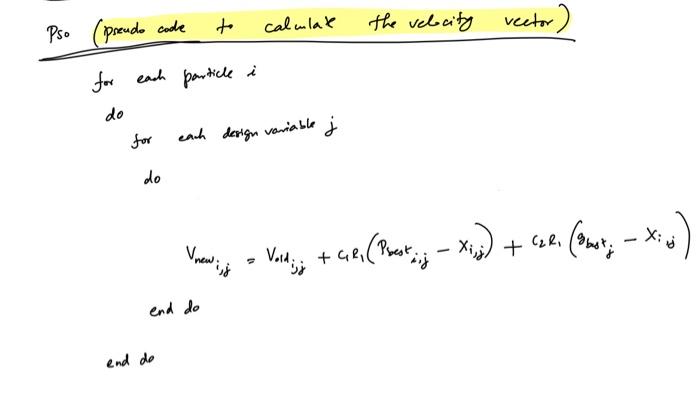 PSO (pseudo code to calculate the velocity vector)
for each particle i
do
for each design variable j
do
Vnew i,j = Vold i,j + C1R1(Pbest i,j - Xi,j) + C2R1(gbest j - Xi,j)
end do
end do